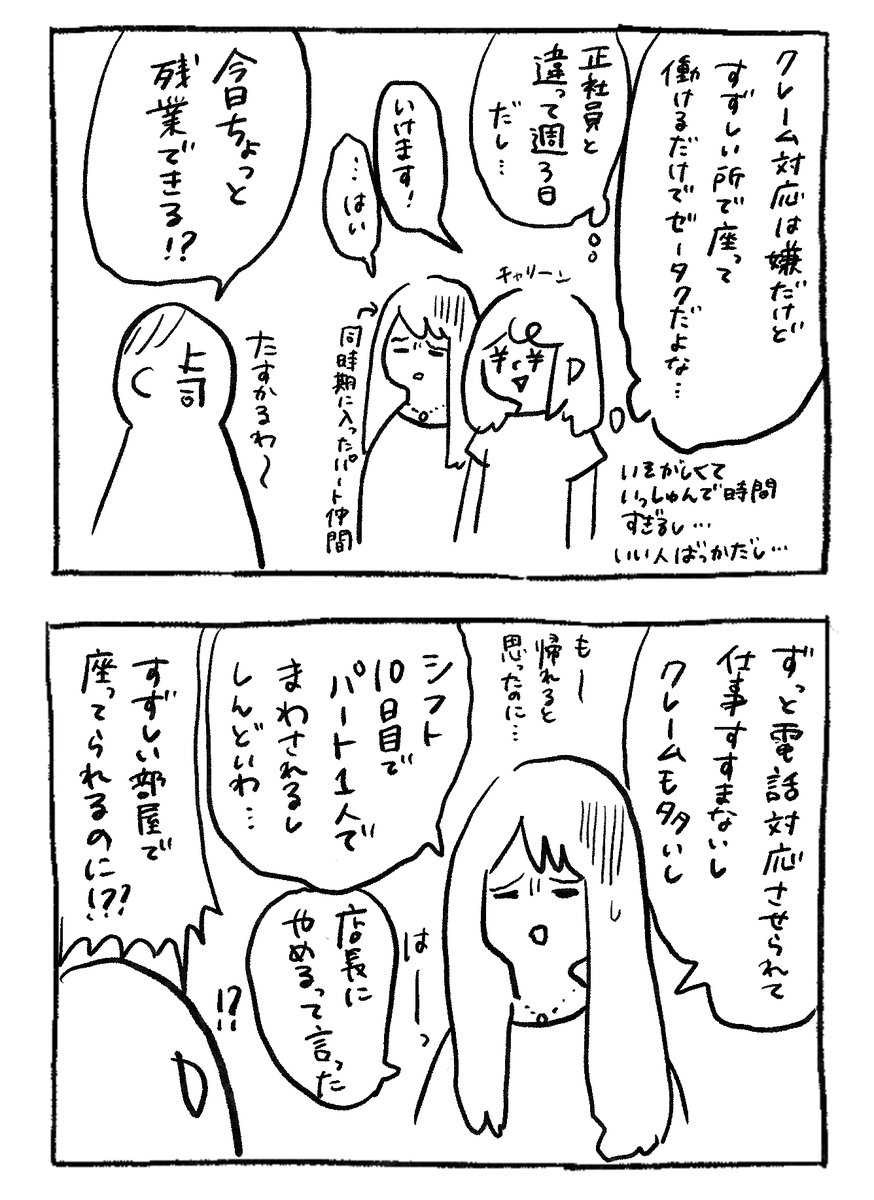 クレーム対応は嫌だけど
すずしい所で座って
働けるだけでゼータクだよな…
正社員と
違って週3日
だし…
いけます!
…はい
今日ちょっと
残業できる!?
キャリーン
同時期に入ったパート仲間
上司
たすかるわ〜
いそがしくて
いっしゅんで時間
すぎるし…
いい人ばっかだし…
ずっと電話対応させられて
仕事すすまないし
クレームも多いし
もー
帰れると
思ったのに…
シフト
10日目で
パート1人で
まわされるし
しんどいわ…
はーっ
店長に
やめるって言った
!?
すずしい部屋で
座ってられるのに!??